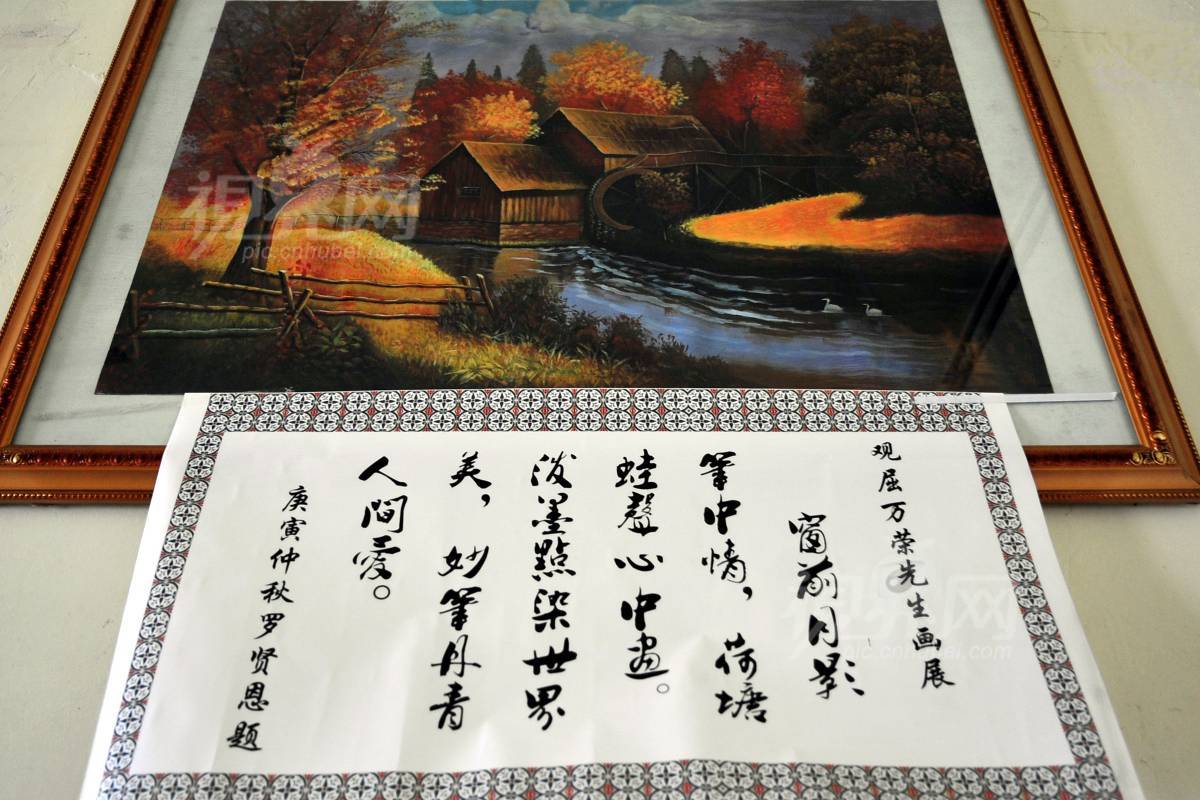 观屈万荣先生画展
窗前月影
笔中情，荷塘
蛙聲心中画。
泼墨點染世界
美，妙笔丹青
人间爱。
庚寅仲秋罗贤恩题
视界网
pic.cnhubei.com
视界网
pic.cnhubei.com